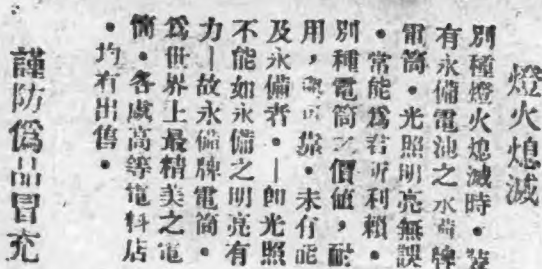 燈火熄滅
別種燈火熄滅時。裝
有永備電池之永備牌
電筒。光照明亮無誤
。常能爲君所利賴。
別種電筒之價値,耐
用,與可靠。未有能
及永備者。—即光照
不能如永備之明亮有
力—故永備牌電筒。
爲世界上最精美之電
筒。各處高等電料店
。均有出售。
謹防僞品冒充